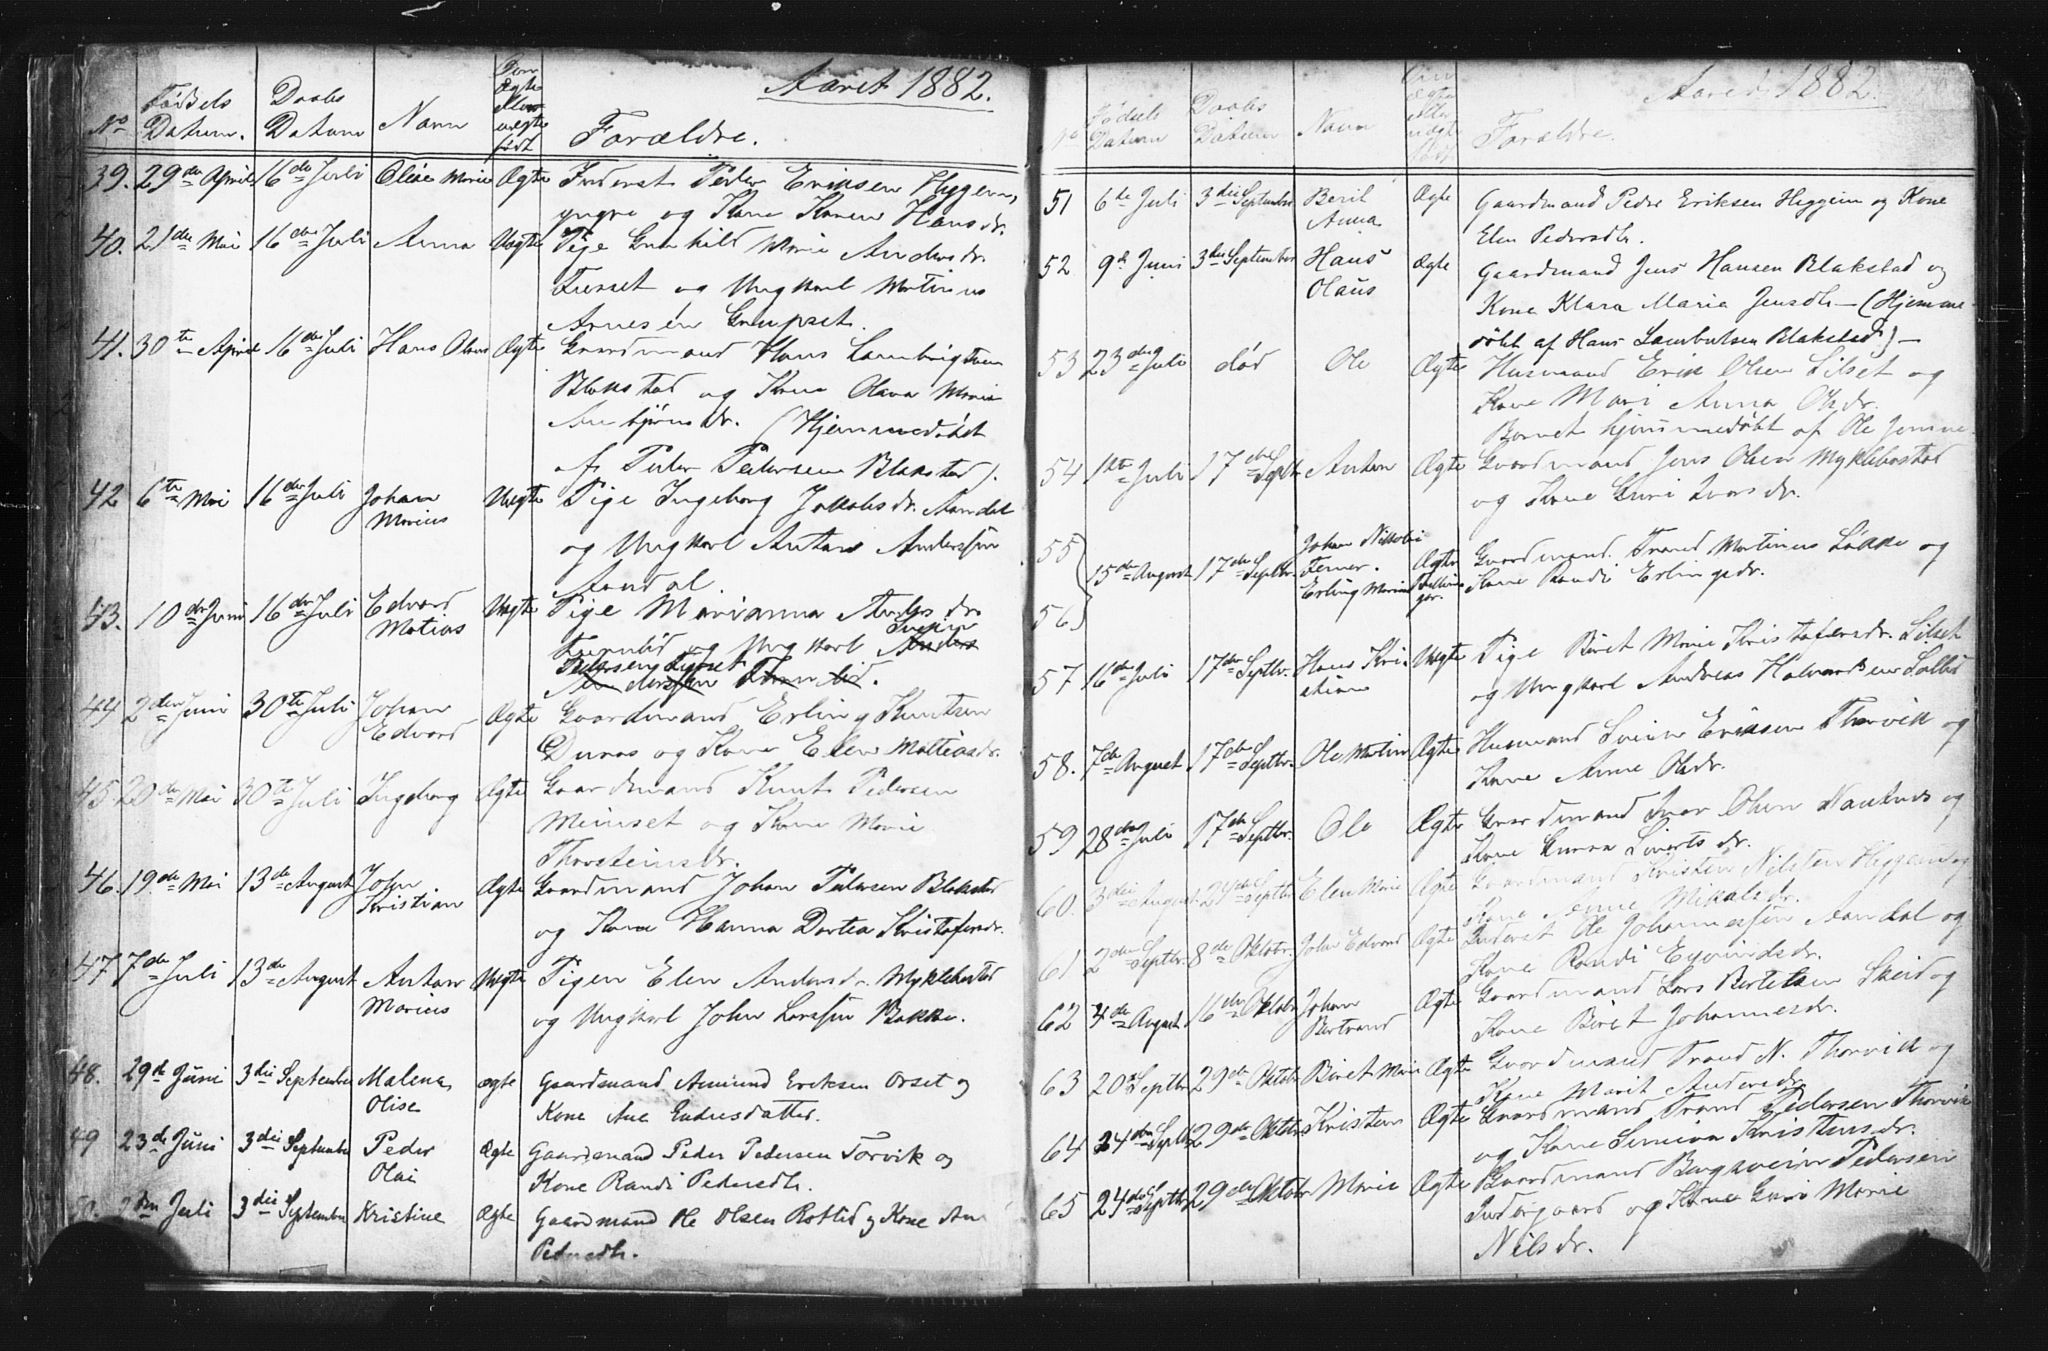 Aaret 1882.
No Fødsels Datum. Daabs Datum Navn Om Ægte eller uægte født Forældre.
39. 29de April 16de Juli Oline Marie Ægte Inderst Peder Eriksen Heggem,
yngre og Kone Karen Hansdr.
40. 21de Mai 16de Juli Anna Uægte Pige Gunhild Marie Andersdr.
Furset og Ungkarl Martinus
Arnesen Grupset.
41. 30te April 16de Juli Hans Olaus Ægte Gaardmand Hans Lambrigtsen
Blakstad og Kone Olava Marie
Ambjørnsdr. (Hjemmedøbt
af Peder Pedersen Blakstad).
42 6te Mai 16de Juli Johan Marius Uægte Pige Ingeborg Jakobsdr. Aandal
og Ungkarl Antan Anderssen
Aandal.
43. 10de Juni 16de Juli Edvard Matias Uægte Pige Marianna Andersdr.
og Ungkarl Anders
Anderssen
44 2den Juni 30te Juli Johan Edvard Ægte Gaardmand Erling Knutsen
og Kone Elen Mattiasdr.
45 20de Mai 30te Juli Ingeborg Ægte Gaardmand Knut Pedersen
og Kone Marie
Thorsteinsdr.
46. 19de Mai 13de August John Kristian Ægte Gaardmand Johan Pedersen Blakstad
og Kone Hanna Dortea Kristofersdr.
47 7de Juli 13de August Antan Marius Uægte Pigen Elen Andersdr. Myklebostad
og Ungkarl John Larssen Bakke.
48. 29de Juni 3die September Malena Olise Ægte Gaardmand Amund Eriksen Orset og
Kone Ane Endresdatter.
49 23de Juni 3die September Peder Olai Ægte Gaardmand Peder Pedersen Torvik og
Kone Randi Pedersdtr.
50. 2den Juli 3die September Kristine Ægte Gaardmand Ole Olsen og Kone An
Pedersdtr.
Aaret 1882.
No Fødsels Datum Daabs Datum Navn Om Ægte eller uægte født Forældre.
51 6te Juli 3die September Beril Anna Ægte Gaardmand Peder Eriksen Heggem og Kone
Elen Pedersdtr.
52 9de Juni 3die September Hans Olaus Ægte Gaardmand Jens Hansen Blakstad og
Kone Klara Maria Jensdtr – (Hjemme-
døbt af Hans Lambertsen Blakstad) –
53 23de Juli død Ole Ægte Husmand Erik Olsen Silset og
Kone Mari Anna Olsdr.
Barnet hjemmedøbt af Ole
54 1ste Juli 17de Septbr. Antan Ægte Gaardmand Jens Olsen Myklebostad
og Kone Guri Ivarsdr.
55 56 15de August 17de Septbr. Johan Nikolai Ferner. Erling Marius Ægte Tvillinger. Gaardmand Trond Martinus Løkke og
Kone Randi Erlingsdr.
57 16de Juli 17de Septbr. Hans Kristian Uægte Pige Beret Marie Kristofersdr. Silset
og Ungkarl Andreas Halvardsen
58. 7de August 17de Septbr. Ole Martin Ægte Husmand Svein Eriksen Thorvik og
Kone Anne Olsdr.
59 28de Juli 17de Septbr. Ole Ægte Gaardmand Ivar Olsen og
Kone Siverts dr.
60. 3die August 24de Septbr Elen Marie Ægte Gaardmand Kristen Nilsen Heggem og
Kone Anne Mikalsdr.
61 2den Septbr. 8de Oktobr. John Edvard Ægte Inderst Ole Johannessen Aandal og
Kone Randi Eyvindsdr.
62 4de August 16de Oktobr Johan Bertrand Ægte Gaardmand Lars Bertelsen Skeid og
Kone Beret Johannesdr.
63 20de Septbr 29de Oktobr Beret Marie Ægte Gaardmand Trond N. Thorvik og
Kone Marit Andersdr.
64 24de Septb 29de Oktobr Kristen Ægte Gaardmand Trond Pedersen Thorvik
og Kone Kristensdr.
65 24de Septbr 29de Oktobr Marie Ægte Gaardmand Bergsvein Pedersen
Indergaard og Kone Guri Marie
Nilsdr.